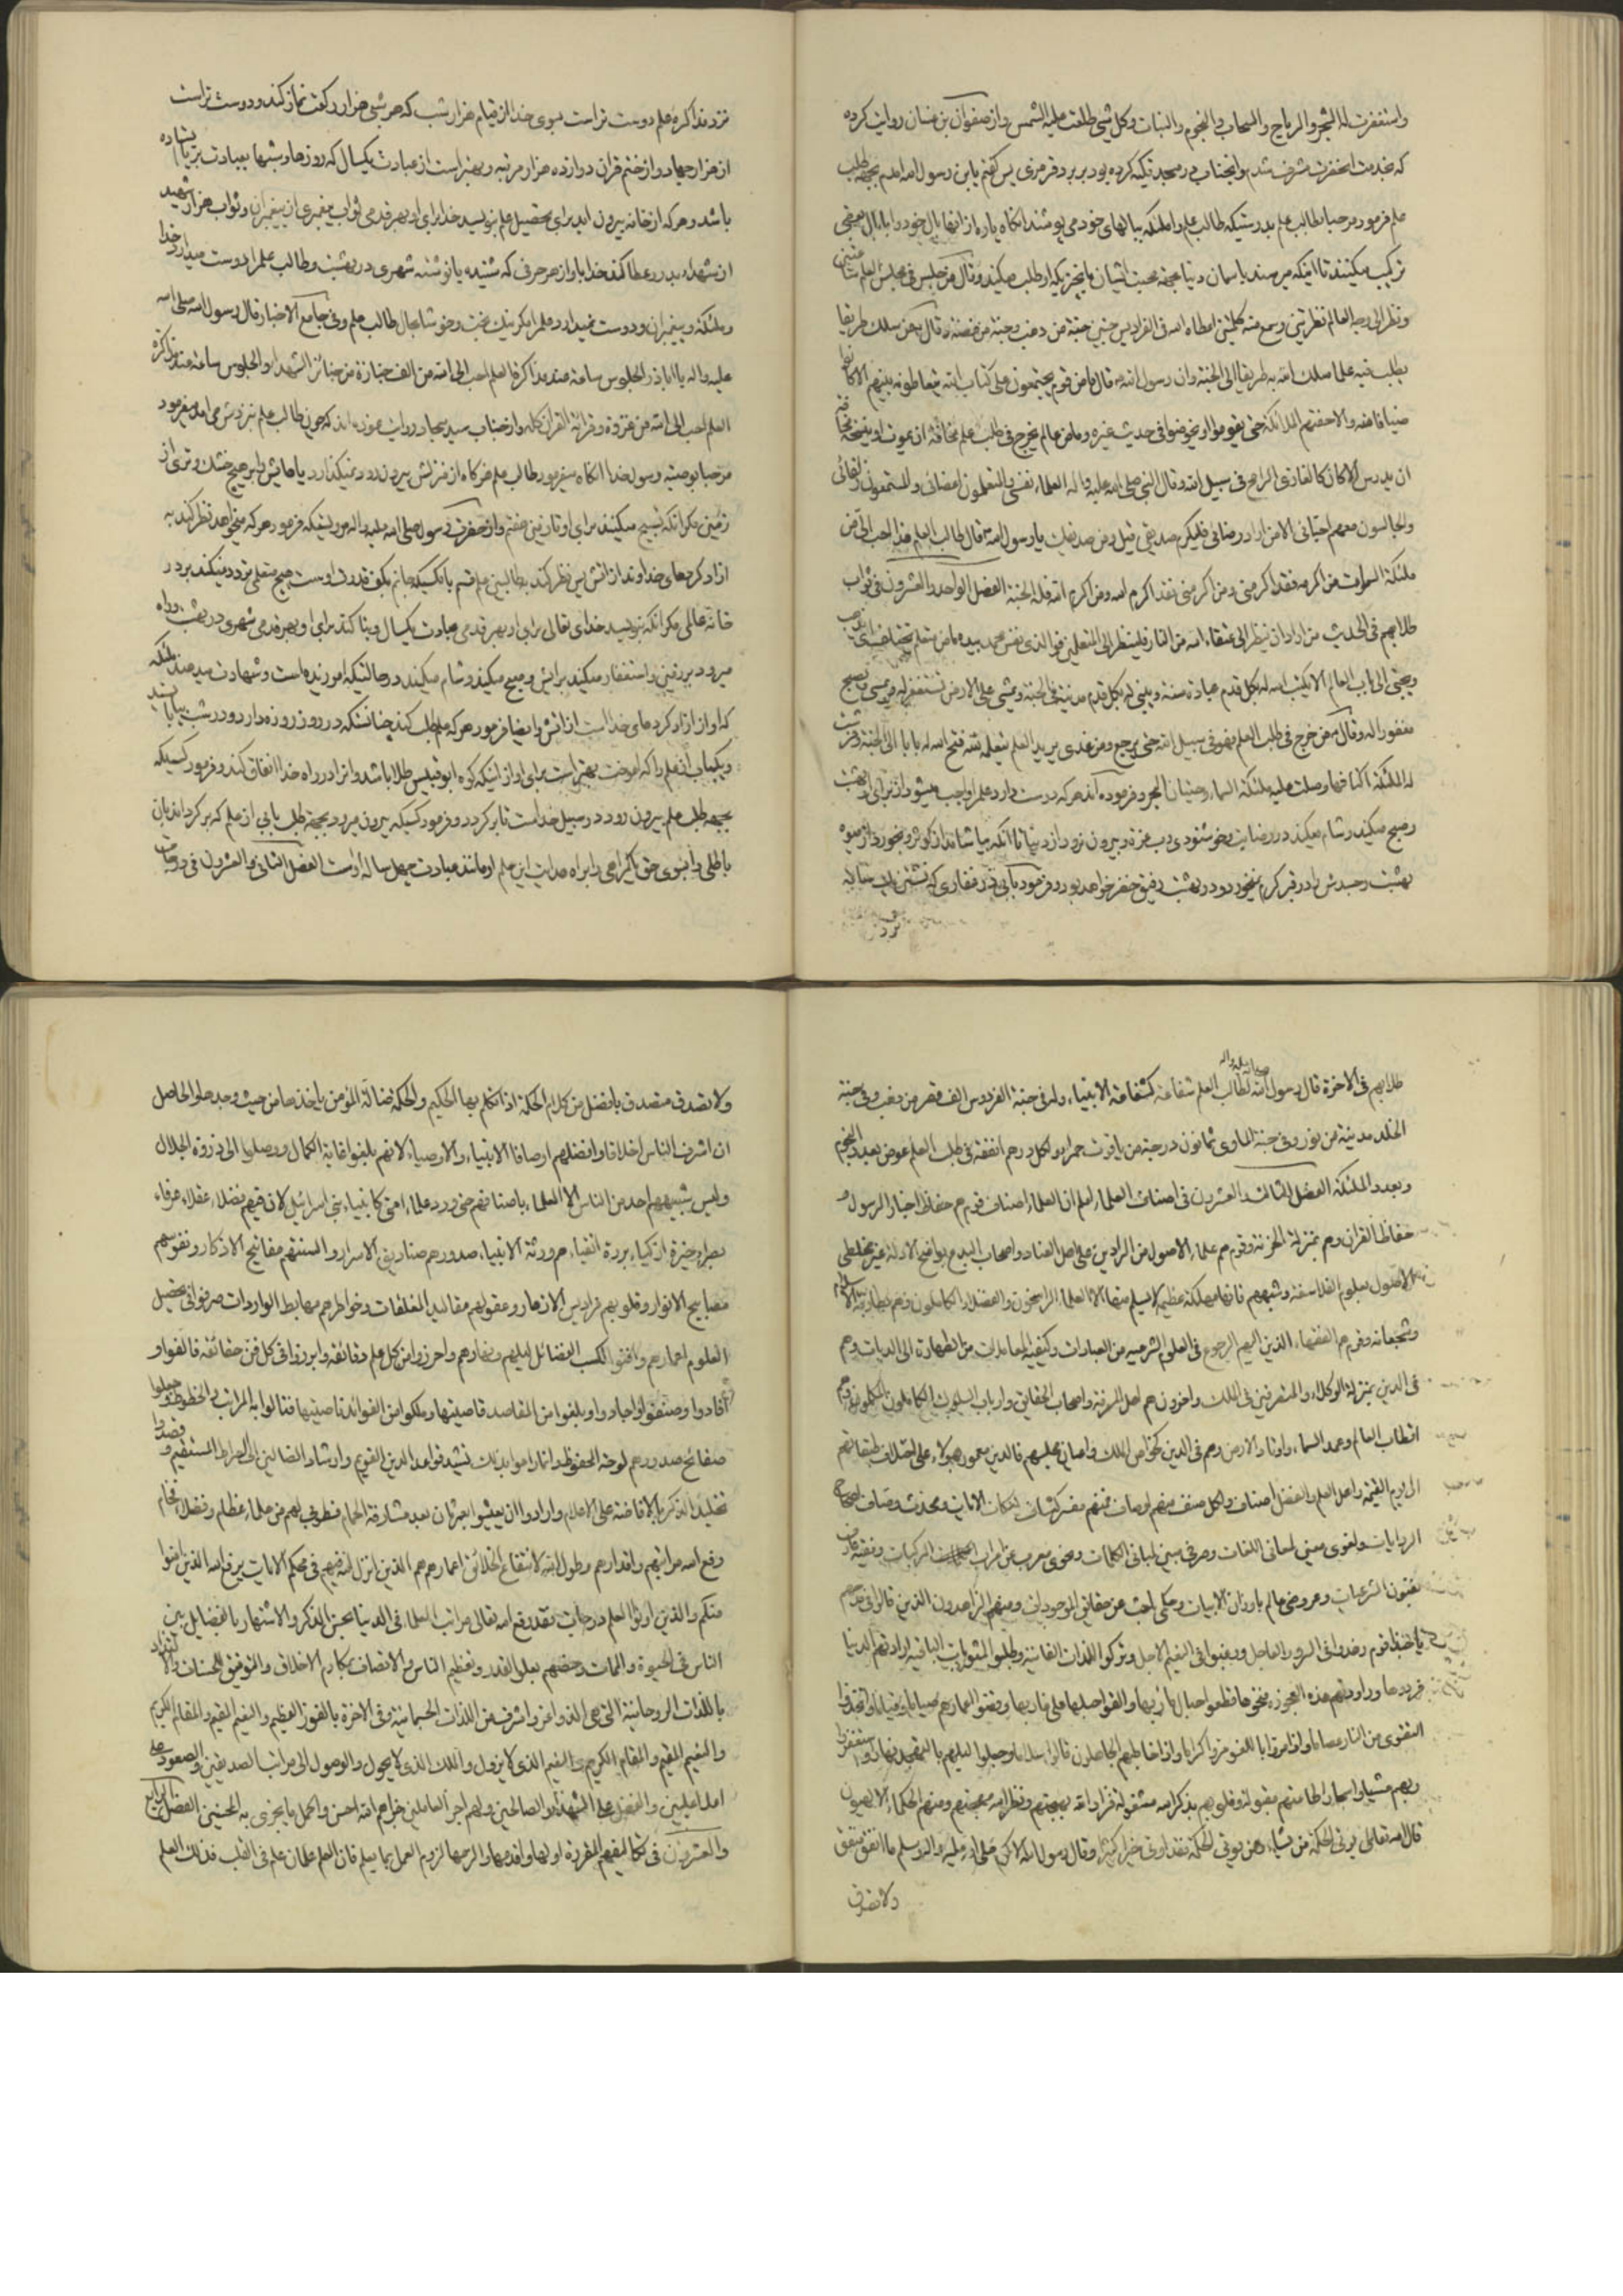 واستغفرت له الشجر والرياح والسحاب والنجوم والنبات وكل شئ طلعت عليه الشمس واز صفوان بن غسان روايت كرده
كه بخدمت انحضرت مشرف شدم وانجناب در مسجد تكيه كرده بود ببرد قرمزى پس گفتم يا بن رسول الله امدم بجهة طلب
علم فرمود مرحبا بطالب علم بدرستيكه طالب علم را ملئكه ببالهاى خود مى پوشند انكاه پاره از انها بال خود را با بال بعضى
تركيب ميكنند تا اينكه ميرسند باسمان دنيا بجهة محبت ايشان بانچيزيكه او طلب ميكند وقال من جلس فى مجلس العلم ساعتين
ونظر الى وجه العالم نظرتين وسمع منه كلمتين اعطاه الله فى الفراديس جنتين جنة من ذهب وجنة من فضة وقال من سلك طريقا
يطلب فيه علما سلك الله به طريقا الى الجنة وان رسول الله قال ما من قوم يجتمعون على كتاب الله يتعاطونه بينهم الا كانوا
ضيافا لله والا حفتهم الملائكة حتى يقوموا او يخوضوا فى حديث غيره وما من عالم يخرج فى طلب علم مخافة ان يموت او ينسخه مخافة
ان يدرس الا كان كالغازى الرايح فى سبيل الله وقال النبى صلى الله عليه واله العلماء نفسى والمتعلمون اعضائى والمستمعون
والجالسون معهم احبائى الا من اراد رضائى فليكرم صديقى قيل ومن صديقك يا رسول الله قال طالب العلم هذا احب الى من
ملئكة السموات من اكرمه فقد اكرمنى ومن اكرمنى فقد اكرم الله ومن اكرم الله فله الجنة الفصل الواحد والعشرون فى ثواب
طلابهم فى الحديث من اراد ان ينظر الى عتقاء الله من النار فلينظر الى المتعلمين فوالذى نفس محمد بيده ما من متعلم
ويجئ الى باب العالم الا يكتب الله له بكل قدم عبادة سنة ويبنى له بكل قدم مدينة فى الجنة ويمشى على الارض تستغفر له ويمسى ويصبح
مغفورا له وقال من خرج فى طلب العلم فهو فى سبيل الله حتى يرجع ومن غدى يريد العلم يتعلمه لله فتح الله له بابا الى الجنة وفرشت
له الملئكة اكنافها وصلت عليه ملئكة السماء وحيتان البحر وفرموده اند هر كه دوست دارد علم را واجب ميشود از براى او بهشت
وصبح ميكند وشام ميكند در رضايت وخوشنودى رب عزة وبيرون نرود از دنيا تا انكه بياشامد از كوثر وبخورد از ميوه
بهشت وجسدش را در قبر كرم نخورد ودر بهشت رفيق خضر خواهد بود
نزد مذاكره علم دوست تر است بسوى خدا از قيام هزار شب كه هر شبى هزار ركعت نماز كند ودوست تر است
از هزار جهاد واز ختم قران دوازده هزار مرتبه وبهتر است از عبادت يكسال كه روزها وشبها بعبادت
باشد وهر كه از خانه بيرون ايد براى تحصيل علم بنويسد خدا براى او بهر قدمى ثواب پيغمبرى از پيغمبران وثواب هزار شهيد
از شهداء بدر وعطا كند خدا باو از هر حرفى كه شنيده يا نوشته شهرى در بهشت وطالب علم را دوست ميدارد خدا
وملئكه وپيغمبران ودوست نميدارد علم را مگر نيك بخت وخوشا بحال طالب علم وفى جامع الاخبار قال رسول الله صلى الله
عليه واله يا اباذر الجلوس ساعة عند مذاكرة العلم احب الى الله من الف جنازة من جنائز الشهداء والجلوس ساعة عند مذاكرة
العلم احب الى الله من غزوة وقرائة القران كله واز جناب سيد سجاد روايت نموده اند كه چون طالب علم نزدش مى امد ميفرمود
مرحبا بوصية رسول خدا انكاه ميفرمود طالب علم هر گاه از منزلش بيرون رود نميگذارد پاهايش را بر هيچ خشك وترى از
زمين مگر انكه تسبيح ميكنند براى او تا زمين هفتم واز حضرت رسول صلى الله عليه واله مرويستكه فرمود هر كه ميخواهد نظر كند به
ازاد كردهاى خداوند از اتش پس نظر كند بطالبين علم قسم بانكسيكه جانم بكف قدرت اوست هيچ متعلمى تردد نميكند بر در
خانه عالمى مگر انكه بنويسد خداى تعالى براى او بهر قدمى عبادت يكسال وبنا كند براى او بهر قدمى شهرى در بهشت وراه
ميرود بر زمين واستغفار ميكند برايش وصبح ميكند وشام ميكند در حالتيكه امرزيده است وشهادت ميدهند ملئكه
كه او از ازاد كردهاى خداست از اتش وايضا فرمود هر كه علم طلب كند چنانستكه در روز روزه دارد ودر شب بپا ايستد
ويكباب از علم را كه اموخت بهتر است براى او از اينكه كوه ابوقبيس طلا باشد وانرا در راه خدا انفاق كند وفرمود كسيكه
بجهة طلب علم بيرون رود در سبيل خداست تا برگردد وفرمود كسيكه بيرون ميرود بجهة طلب بابى از علم كه برگرداند بان
باطلى را بسوى حق يا گمراهى را براه هدايت اين علم او مانند عبادت چهل ساله اوست الفصل الثانى والعشرون فى درجات
طلابهم فى الاخرة قال رسول الله صلى الله عليه واله لطالب العلم شفاعة كشفاعة الانبياء وله فى جنة الفردوس الف قصر من ذهب وفى جنة
الخلد مدينة من نور وفى جنة الماوى ثمانون درجة من ياقوت حمراء ولكل درهم انفقه فى طلب العلم عوض بعدد النجوم
وبعدد الملئكة الفصل الثالث والعشرون فى اصناف العلماء اعلم ان العلماء اصناف قوم هم حفاظ اخبار الرسول و
حفاظ القران وهم بمنزلة الخزنة وقوم هم علماء الاصول من الرادين على اهل العناد واصحاب البدع بواضح الادلة غير مخلطى
الاصول بعلوم الفلاسفة وشبههم فانها مهلكة عظيمة لا يسلم منها الا العلماء الراسخون والفضلاء الكاملون وهم
وشجعانه وقوم هم الفقهاء الذين اليهم الرجوع فى العلوم الشرعية من العبادات وكيفية المعاملات من الطهارة الى الديات وهم
فى الدين بمنزلة الوكلاء والمتصرفين فى الملك واخرون هم اهل المعرفة واصحاب الحقايق وارباب السلوك الكاملون المكملون وهم
اقطاب العالم وعمد السماء واوتاد الارض وهم فى الدين كخواص الملك واعيان مجلسهم فالدين معمور بهؤلاء على اختلاف طبقاتهم
الى يوم القيمة واهل العلم والفضل اصناف ولكل صنف منهم اوصاف فمنهم مفسر كشاف لنكات الايات ومحدث وصاف لصحاح
الروايات ولغوى معين لمعانى اللغات وصرفى مبين لمبانى الكلمات ونحوى معرب عن اعراب المركبات وفقيه عارف
بفنون الشرعيات وعروضى عالم باوزان الابيات وحكمى باحث عن حقايق الموجودات ومنهم الزاهدون الذين قال فى حقهم
يا حبذا قوم رفضوا فى السرور العاجل ورغبوا فى النعيم الاجل وتركوا اللذات الفانية وطلبوا المثوبات الباقية ارادتهم الدنيا
واتخذوا
التقوى من النار واذا مروا باللغو مروا كراما واذا خاطبهم الجاهلون قالوا سلاما وجعلوا ليلهم بالتهجد نهارا واستغفروا
ربهم عشيا واسحارا طاعتهم مقبولة وقلوبهم بذكر الله مشغولة ومنهم الحكماء الالهيون
قال الله تعالى يؤتى الحكمة من يشاء ومن يؤت الحكمة فقد اوتى خيرا كثيرا وقال رسول الله الاكرم صلى الله عليه واله وسلم ما انفق منفق
ولا تصدق
ولا تصدق متصدق بافضل من كلام الحكمة اذا تكلم بها الحكيم والحكمة ضالة المؤمن ياخذها من حيث وجدها والحاصل
ان اشرف الناس اخلاقا وافضلهم اوصافا الانبياء والاوصياء لانهم بلغوا غاية الكمال ووصلوا الى ذروة الجلال
وليس شبيههم احد من الناس الا العلماء باصنافهم حتى ورد علماء امتى كانبياء بنى اسرائيل لان فيهم فضلاء عقلاء عرفاء
بصراء خيرة ازكياء بررة اتقياء هم ورثة الانبياء صدورهم صناديق الاسرار والسنتهم مفاتيح الاذكار ونفوسهم
مصابيح الانوار وقلوبهم فراديس الازهار وعقولهم مقاليد المغلقات وخواطرهم مهابط الواردات صرفوا فى تحصيل
العلوم اعمارهم وافنوا لكسب الفضائل ليلهم ونهارهم واحرزوا من كل علم دقائقه وابرزوا فى كل فن حقائقه فالفوا و
افادوا وصنفوا واجادوا وبلغوا من المقاصد قاصيتها وملكوا من الفوائد ناصيتها فنالوا به المراتب والحظوظ وجعلوا
صفائح صدورهم لوحه المحفوظ وانما راموا بذلك تشييد قواعد الدين القويم وارشاد الضالين الى الصراط المستقيم وقصدوا
تخليد الذكر بالافاضة على الاعلام وارادوا ان يعيشوا بعد مشارفة الحمام فطوبى لهم من علماء عظام وفضلاء فخام
رفع الله مراتبهم واقدارهم وطول لانتفاع الخلائق اعمارهم هم الذين انزل الله فيهم فى محكم الايات يرفع الله الذين امنوا
منكم والذين اوتوا العلم درجات فقد رفع الله تعالى مراتب العلماء فى الدنيا بحسن الذكر والاشتهار بالفضايل بين
الناس فى الحيوة والممات وخصهم بعلو القدر وتعظيم الناس والاتصاف بمكارم الاخلاق والتوفيق للحسنات
باللذات الروحانية التى هى الذ واعز واشرف من اللذات الجسمانية وفى الاخرة بالفوز العظيم والنعيم المقيم والمقام الكريم
والنعيم المقيم والمقام الكريم والنعيم الذى لا يزول والملك الذى لا يحول والوصول الى مراتب الصديقين والصعود على
اعلى عليين والفضل على الشهداء والصالحين ولهم اجر العاملين جزاهم الله احسن واكمل ما يجزى به المحسنين الفصل الرابع
والعشرون فى تكاليفهم المقررة اولها واقدمها والزمها لزوم العمل بما يعلم فان العلم علمان علم فى القلب فذلك العلم